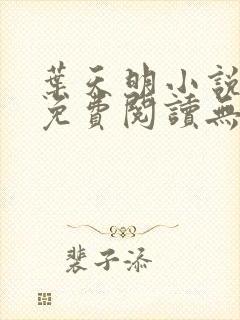 葉天明小說
免費閱讀無
裴子添